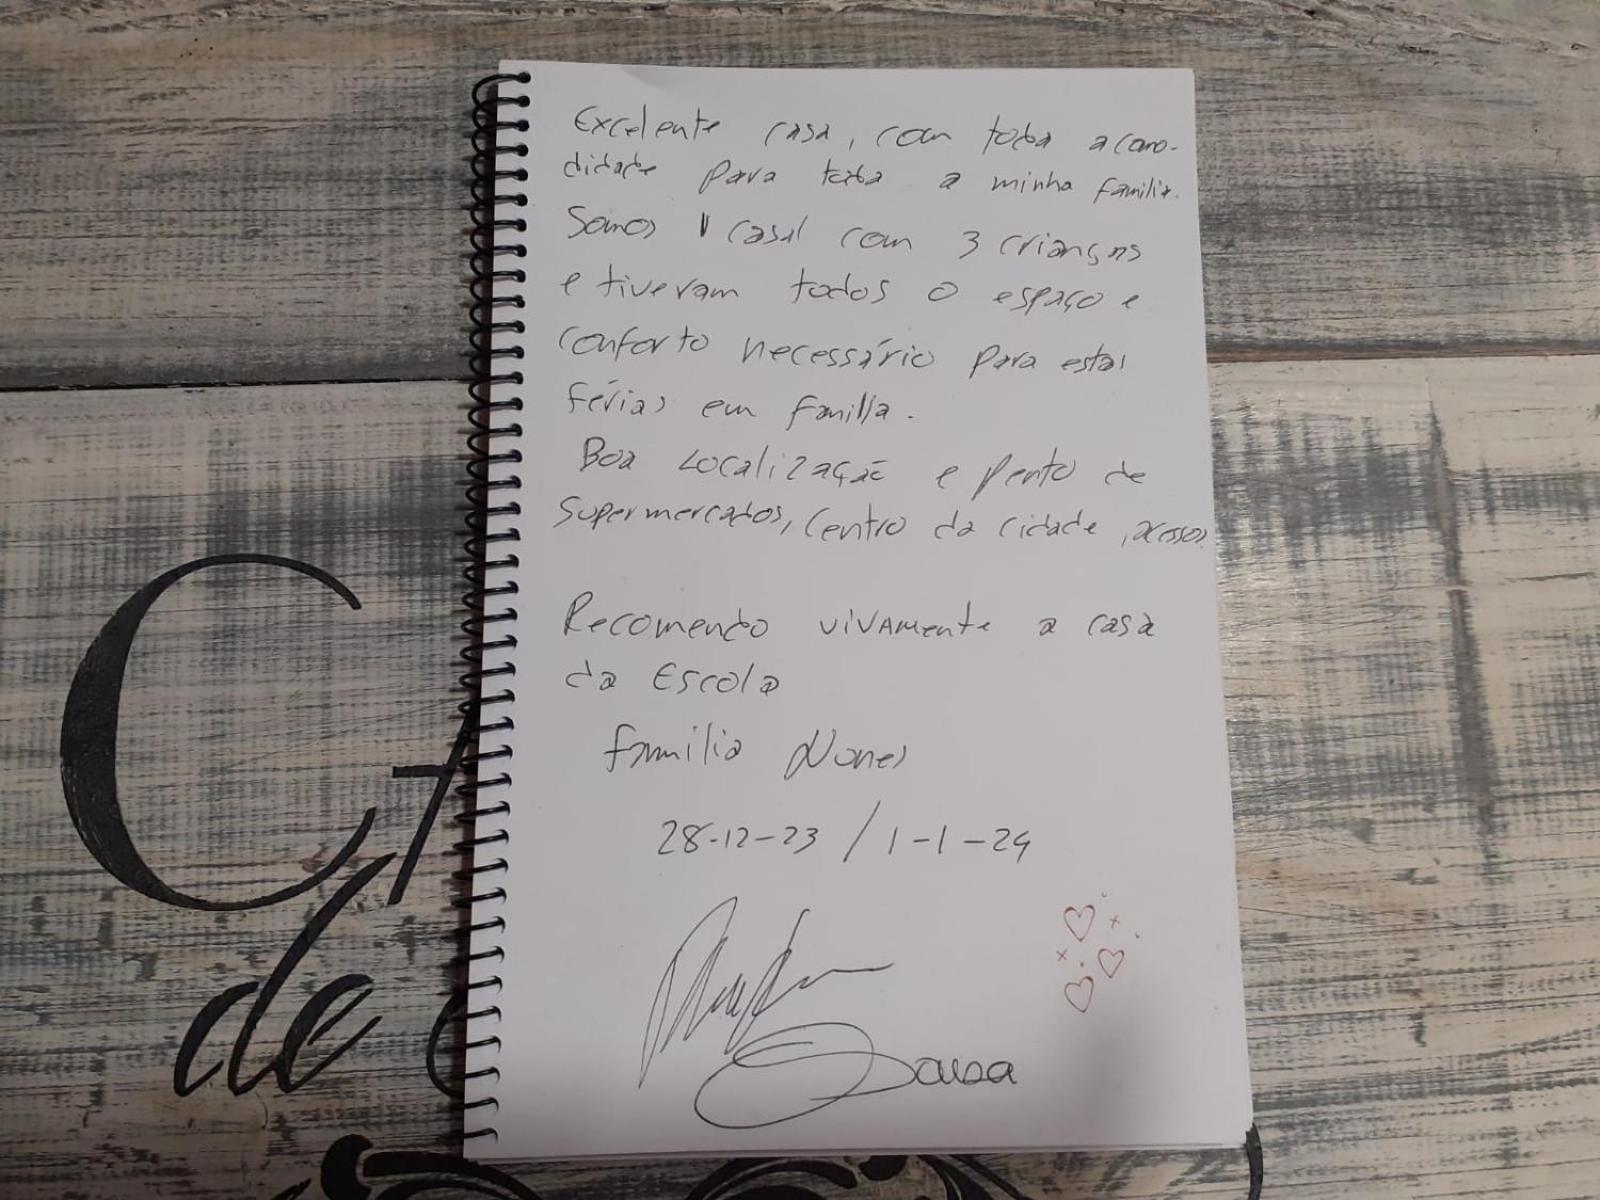 Excelente casa, com toda a como-
didade para toda a minha familia.
Somos 1 casal com 3 crianças
e tiveram todos o espaço e
conforto necessário para estas
férias em familia.
Boa Localização e perto de
Supermercados, Centro da cidade, acessos.
Recomendo vivamente a casa
da Escola
família Nunes
28-12-23 / 1-1-24
Sousa
CA
de